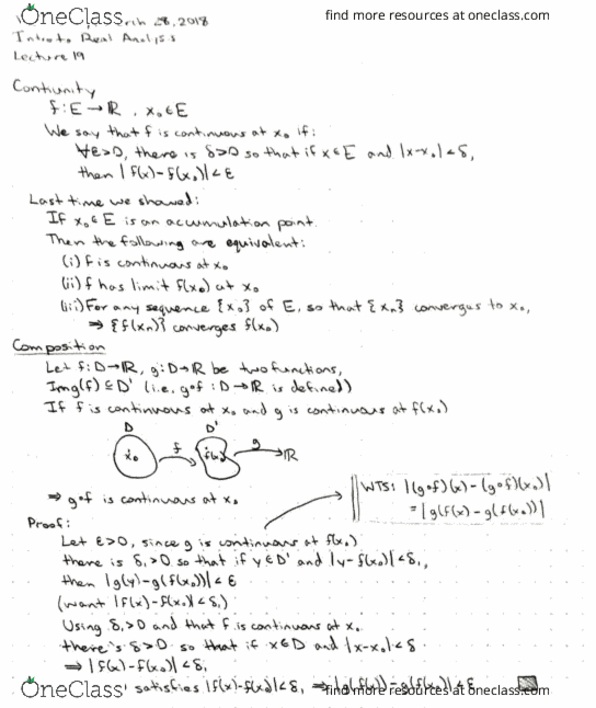 OneClass
find more resources at oneclass.com
March 28, 2018
Intro to Real Analysis
Lecture 19
Contiunity
f: E → ℝ , x₀ ∈ E
We say that f is continuous at x₀ if:
∀ε>0, there is δ>0 so that if x ∈ E and |x-x₀|<δ,
then |f(x)-f(x₀)|<ε
Last time we showed:
If x₀ ∈ E is an accumulation point.
Then the following are equivalent:
(i) f is continuous at x₀
(ii) f has limit f(x₀) at x₀
(iii) For any sequence {xₙ} of E, so that {xₙ} converges to x₀,
⇒ {f(xₙ)} converges f(x₀)
Composition
Let f: D→ℝ, g: D→ℝ be two functions,
Img(f) ⊆ D' (i.e. g∘f : D→ℝ is defined)
If f is continuous at x₀ and g is continuous at f(x₀)
D D'
x₀ f f(x₀) g ℝ
⇒ g∘f is continuous at x₀
WTS: |(g∘f)(x)-(g∘f)(x₀)|
= |g(f(x)-g(f(x₀))|
Proof:
Let ε>0, since g is continuous at f(x₀)
there is δ₁>0 so that if y ∈ D' and |y-f(x₀)|<δ₁,
then |g(y)-g(f(x₀))|<ε
(want |f(x)-f(x₀)|<δ₁)
Using δ₁>0 and that f is continuous at x₀
there's δ>0 so that if x ∈ D and |x-x₀|<δ
⇒ |f(x)-f(x₀)|<δ₁
satisfies |f(x)-f(x₀)|<δ, ⇒ |g(f(x))-g(f(x₀))|<ε
OneClass
find more resources at oneclass.com